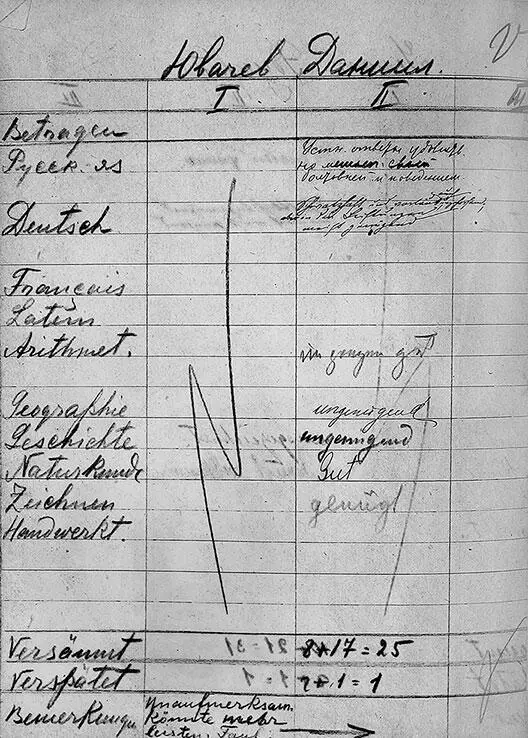 Ювачев Даниил.
III I II III
Betragen
Русск. яз Устн. ответы удовлетв.
но мешает своей
болтовней и поведением
Deutsch
Français
Latein
Arithmet. im ganzen gut
Geographie ungenügend
Geschichte ungenügend
Naturkunde Gut
Zeichnen genügt
Handwerkt.
Versäumt 8+17=25
Verspätet 1=1
Bemerkungen Unaufmerksam.
könnte mehr
leisten. Faul.